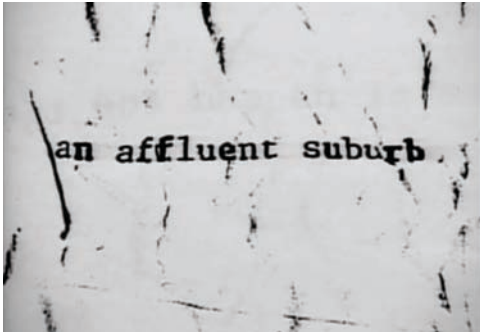 an affluent suburb